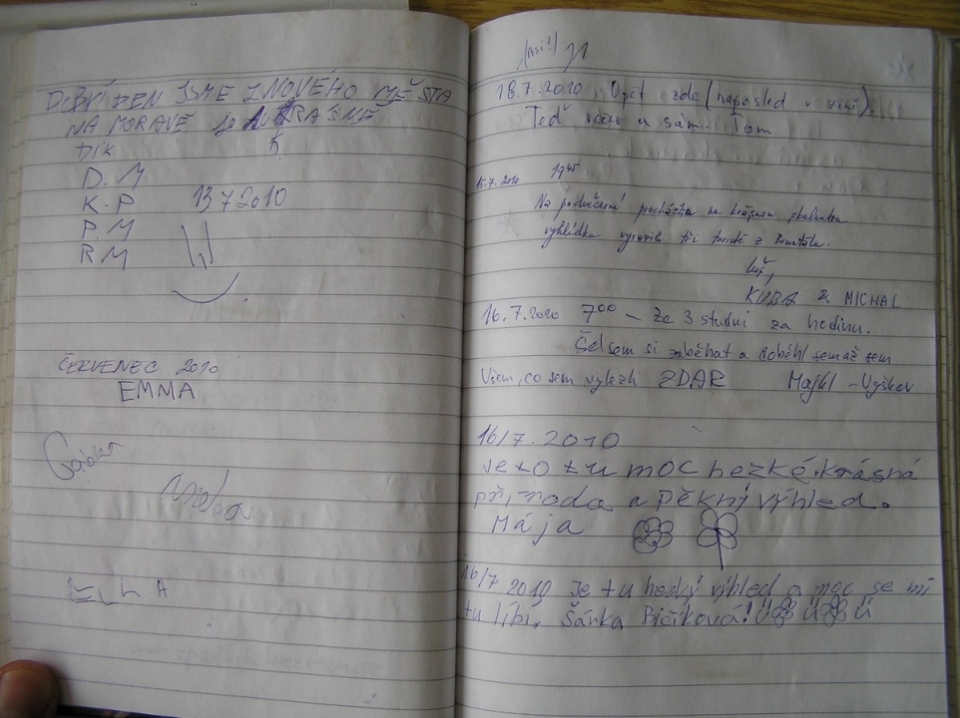 DOBRÍ DEN JSME Z NOVÉHO MĚSTA
NA MORAVĚ Je KRÁSNĚ
DÍK
D. M
K. P 13 7 2010
P. M
R M
ČERVENEC 2010
EMMA
Gabka
ELLA
(Asi?)
18.7.2010 Opět zde (naposled v zimě).
Teď včera a sám. Tom
15.7.2010
Na podvečerní procházku na krásnou
vyhlídku vyrazili tři
KUBA & MICHAL
16.7.2010 7⁰⁰ – Ze 3 studní za hodinu.
Šel sem si zaběhat a doběhl sem až sem
Všem, co sem vylezli ZDAR Majkl – Vyškov
16/7. 2010
Je to tu moc hezké. krásná
příroda a pěkný výhled.
Mája
16/7 2010 Je tu hezký výhled a moc se mi
tu líbí, Šárka Bičíková!